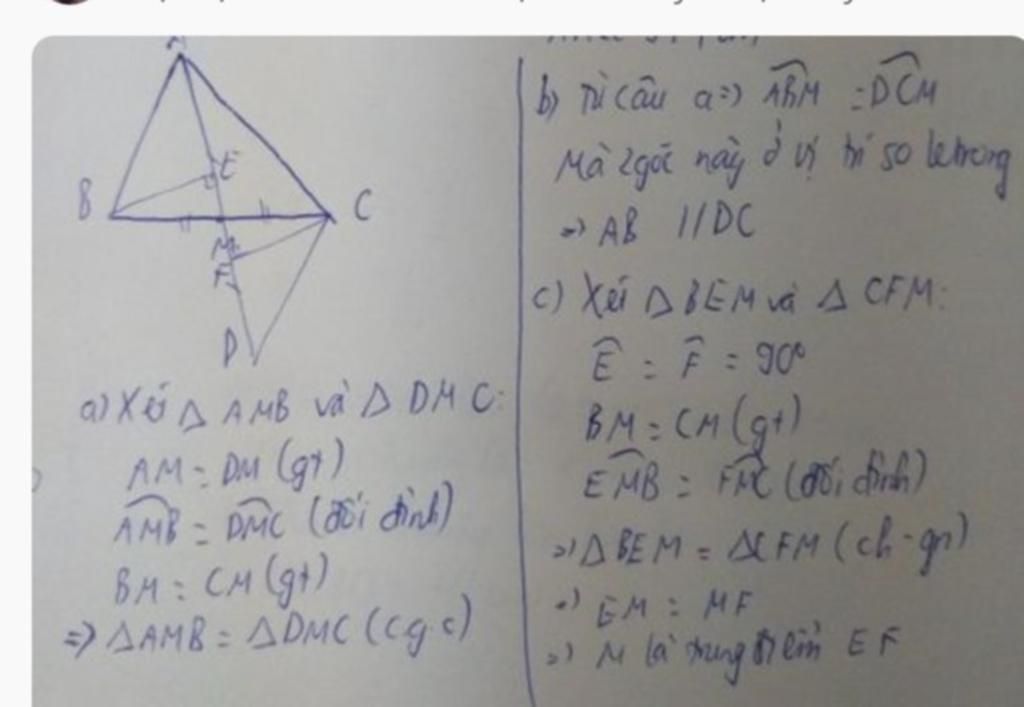 A
E
B
C
M
F
D
a) Xét △ AMB và △ DMC:
AM = DM (gt)
AMB = DMC (đối đỉnh)
BM = CM (gt)
=> △AMB = △DMC (c.g.c)
b) Từ câu a => ABM = DCM
Mà 2 góc này ở vị trí so le trong
=> AB // DC
c) Xét △ BEM và △ CFM:
E = F = 90°
BM = CM (gt)
EMB = FMC (đối đỉnh)
=> △BEM = △CFM (ch - gn)
=> EM = MF
=> M là trung điểm EF